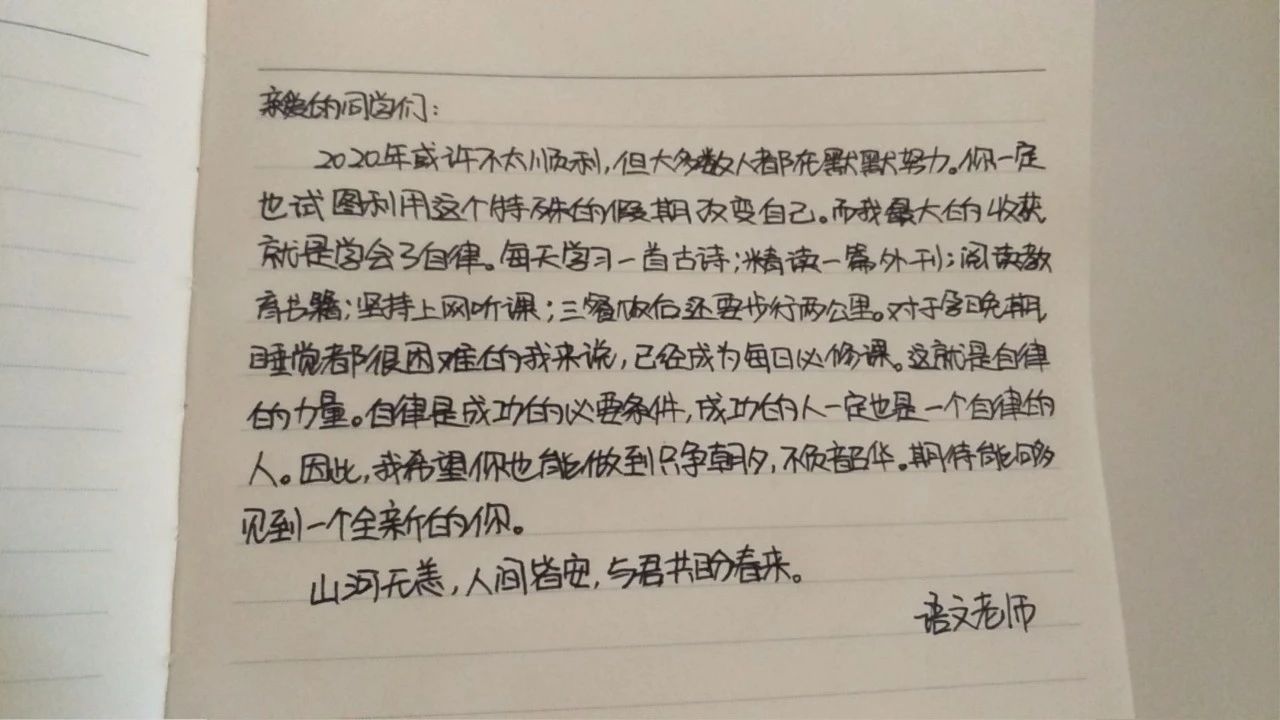 亲爱的同学们：
2020年或许不太顺利，但大多数人都在默默努力。你一定
也试图利用这个特殊的假期改变自己。而我最大的收获
就是学会了自律。每天学习一首古诗；精读一篇外刊；阅读教
育书籍；坚持上网听课；三餐饭后还要步行两公里。对于早晚期
睡觉都很困难的我来说，已经成为每日必修课。这就是自律
的力量。自律是成功的必要条件，成功的人一定也是一个自律的
人。因此，我希望你也能做到只争朝夕，不负韶华。期待能够
见到一个全新的你。
山河无恙，人间皆安，与君共盼春来。
语文老师